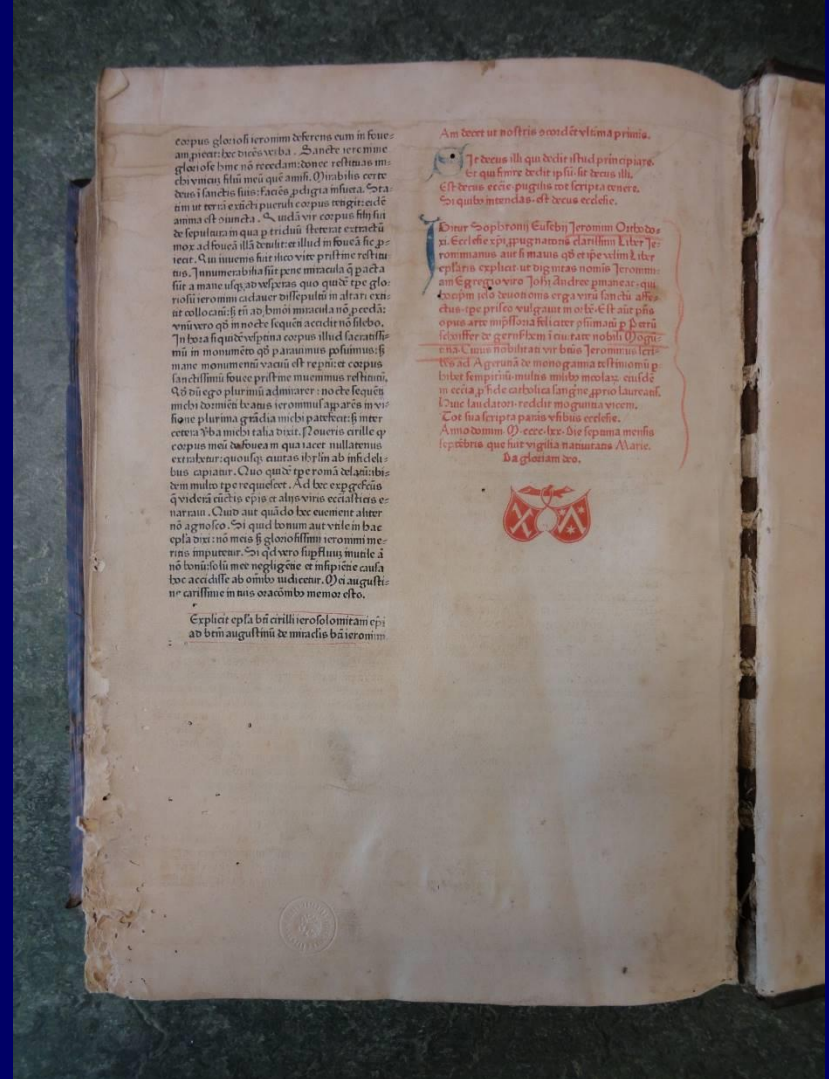 corpus gloriosi ieronimi deferens eum in foue⸗
am ꝓiecit: hec dicēs verba . Sancte ieronime
gloriose hinc nō recedam: donec restituas mi⸗
chi vnicū filiū meū quē amisi. Mirabilis certe
deus ī sanctis suis: faciēs ꝓdigia insueta. Sta⸗
tim ut terrā extīcti pueruli corpus tengit: eidē
anima est ꝯiuncta . Quidā vir corpus filij sui
de sepultura in qua p triduū steterat extractū
mox ad foueā illā detulit: et illud in foueā sic p⸗
iecit. Qui iuuenis fuit ilico vite pristine restitu
tus. Innumerabilia sūt pene miracula q̄ pacta
sūt a mane usqꝫ ad vesperas quo quidē tpe glo⸗
riosū ieronimi cadauer dissepultū in altari exti⸗
tit collocatū: sꝫ tn̄ ad hmōi miracula nō ꝓcedā:
vnū vero qd in nocte sequēti accidit nō silebo.
In hora siquidē vesptina corpus illud sacratissi⸗
mū in monumēto qd parauimus posuimus: sꝫ
mane monumentū vacuū est reptū: et corpus
sanctissimū fouee pristine inuenimus restitutū,
Qd dū ego plurimū admirarer : nocte sequēti
michi dormiēti beatus ieronimus apparēs in vi⸗
sione plurima grādia michi patefecit: sꝫ inter
cetera v̄ba michi talia dixit. Noueris cirille qd
corpus meū de fouea in qua iacet nullatenus
extrahetur: quousqꝫ ciuitas ihrlm ab infideli⸗
bus capiatur. Quo quidē tpe romā delatū: ibi⸗
dem multo tpe requiescet. Ad hec expgefcūs
q̄ viderā cūctis epis et alijs viris ecclasticis e⸗
narraui. Quid aut quādo hec euenient aliter
nō agnosco. Si quid bonum aut vtile in hac
epla dixi: nō meis sꝫ gloriosissimi ieronimi me⸗
ritis imputetur. Si qd vero supfluū inutile ⁊
nō bonū: solū mee negligētie et insipiētie causa
hoc accidisse ab omībꝫ iudicetur. Mei augusti⸗
ne carissime in tuis oracōnibꝫ memor esto.
Explicit epla bti cirilli ierosolomitani epi
ad btm augustinū de miraclis bti ieronimi
Iam decet ut nostris ꝯcordēt vltima primis.
Sit decus illi qui dedit istud principiare.
Et qui finire dedit ipsū. sit decus illi.
Est decus eccīe pugilis tot scripta tenere.
Si quibꝫ intendas. est decus ecclesie.
Igitur Sophronij Eusebij Ieronimi Orthodo⸗
xi. Ecclesie xp̄i ꝓpugnatoris clarissimi Liber Ie⸗
ronimianus aut si mauis qd et ipe velim Liber
eplaris explicit. ut dignitas nomīs Ieronimi⸗
am Egregio viro Iohi Andree pmaneat. qui
hoc ipm zelo deuotionis erga virū sanctū affe⸗
ctus. tpe prisco vulgauit in orbē. Est aūt pn̄s
opus arte imp̄ssoria feliciter ꝯsumatū p Petrū
schoiffer de gernsshem ī ciuitate nobili Mogū⸗
tina. Cuius nobilitati vir btūs Ieronimus scri⸗
bēs ad Agerunā de monogamia testimoniū p⸗
hibet sempiternū. multis milibꝫ incolarꝫ eiusdē
in eccīa ꝓ fide catholica sangīne ꝓprio laureatis,
Huic laudatori. reddit moguntia vicem.
Tot sua scripta parās vsibus ecclesie.
Anno domini. M.cccc.lxx. Die septima mensis
septēbris que fuit vigilia natiuitatis Marie.
Da gloriam deo.